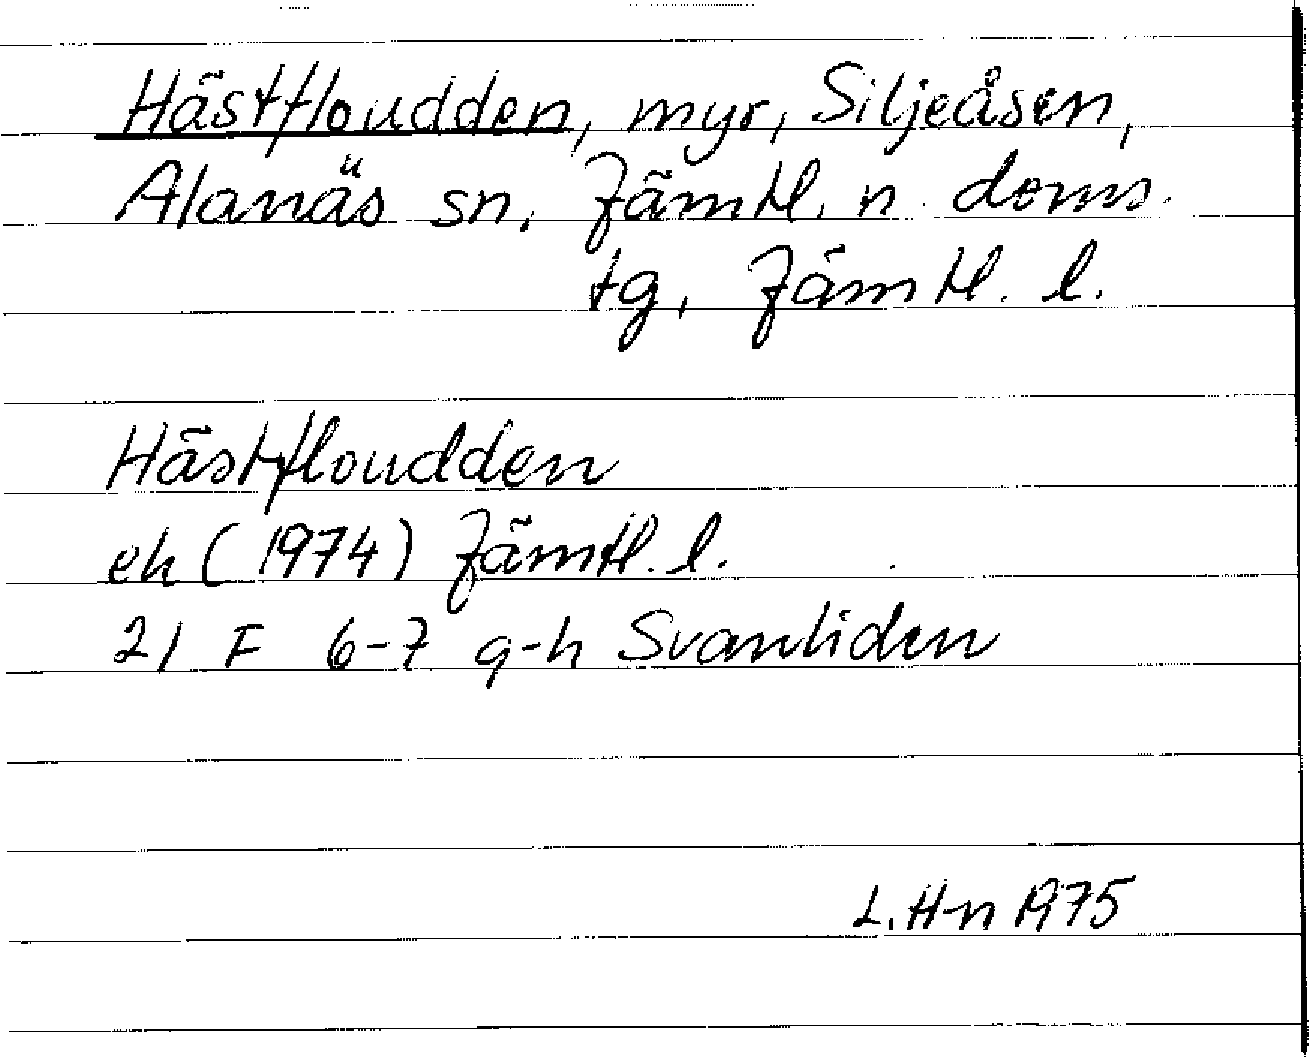 Hästfloudden, myr, Siljeåsen,
Alanäs sn, Jämtl. n. doms.
tg, Jämtl. l.
Hästfloudden
ek (1974) Jämtl. l.
21 F 6-7 g-h Svanliden
L. H-n 1975